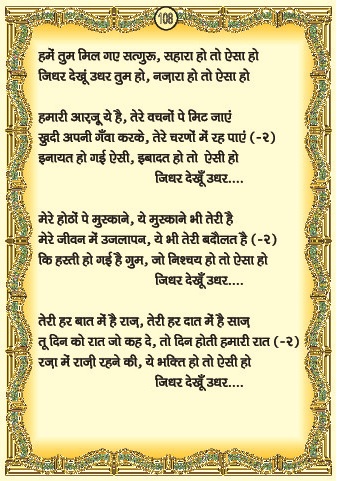 108
हमें तुम मिल गए सत्गुरू, सहारा हो तो ऐसा हो
जिधर देखूं उधर तुम हो, नज़ारा हो तो ऐसा हो
हमारी आरज़ू ये है, तेरे वचनों पे मिट जाएं
ख़ुदी अपनी गँवा करके, तेरे चरणों में रह पाएं (-२)
इनायत हो गई ऐसी, इबादत हो तो ऐसी हो
जिधर देखूँ उधर....
मेरे होठों पे मुस्काने, ये मुस्काने भी तेरी है
मेरे जीवन में उजलापन, ये भी तेरी बदौलत है (-२)
कि हस्ती हो गई है गुम, जो निश्चय हो तो ऐसा हो
जिधर देखूँ उधर....
तेरी हर बात में है राज़, तेरी हर दात में है साज़
तू दिन को रात जो कह दे, तो दिन होती हमारी रात (-२)
रज़ा में राज़ी रहने की, ये भक्ति हो तो ऐसी हो
जिधर देखूँ उधर....